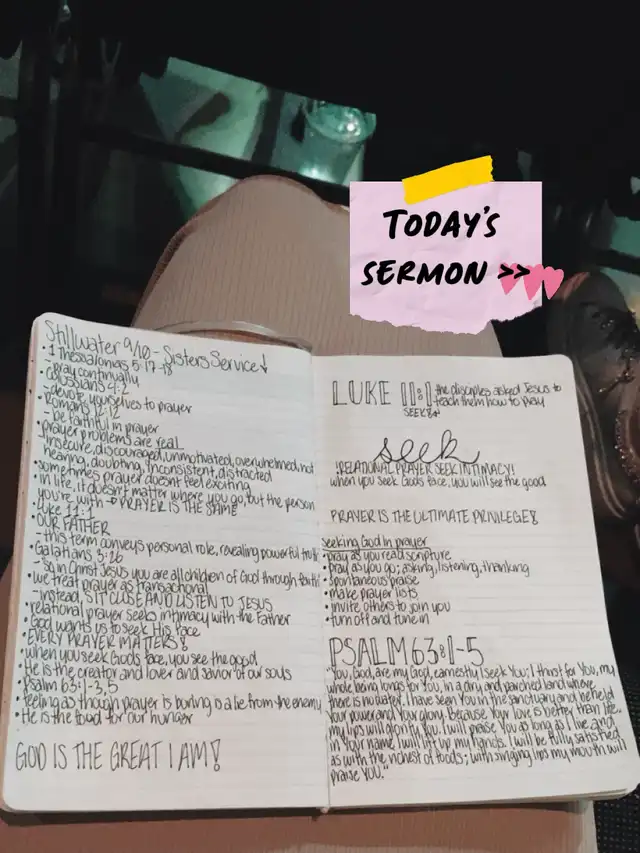 TODAY'S
SERMON >>
Stillwater 9/10 - Sisters Service ↓
• 1 Thessalonians 5:17-18
- pray continually
• Colossians 4:2
- devote yourselves to prayer
• Romans 12:12
- be faithful in prayer
• prayer problems are real
insecure, discouraged, unmotivated, overwhelmed, not
hearing, doubting, inconsistent, distracted
• sometimes prayer doesn't feel exciting
• in life, it doesn't matter where you go, but the person
you're with → PRAYER IS THE SAME
• Luke 11:1
• OUR FATHER
- this term conveys personal role, revealing powerful truth
• Galatians 3:26
- So in Christ Jesus you are all children of God through faith
• we treat prayer as transactional
- instead, SIT CLOSE AND LISTEN TO JESUS
• relational prayer seeks intimacy with the Father
• God wants us to seek His face
• EVERY PRAYER MATTERS!
• when you seek God's face, you see the good
• He is the creator and lover and savior of our souls
• Psalm 63:1-3,5
• feeling as though prayer is boring is a lie from the enemy
• He is the food for our hunger
GOD IS THE GREAT I AM!
LUKE 11:1 the disciples asked Jesus to
teach them how to pray
SEEK
seek
!RELATIONAL PRAYER SEEK INTIMACY!
when you seek God's face, you will see the good
PRAYER IS THE ULTIMATE PRIVILEGE!
seeking God in prayer
• pray as you read scripture
• pray as you go; asking, listening, thanking
• spontaneous praise
• make prayer lists
• invite others to join you
• turn off and tune in
PSALM 63:1-5
"You, God, are my God, earnestly I seek You; I thirst for You, my
whole being longs for You, in a dry and parched land where
there is no water. I have seen You in the sanctuary and beheld
Your power and Your glory. Because Your love is better than life,
my lips will glorify You. I will praise You as long as I live and
in Your name I will lift up my hands. I will be fully satisfied
as with the richest of foods; with singing lips my mouth will
praise YOU."